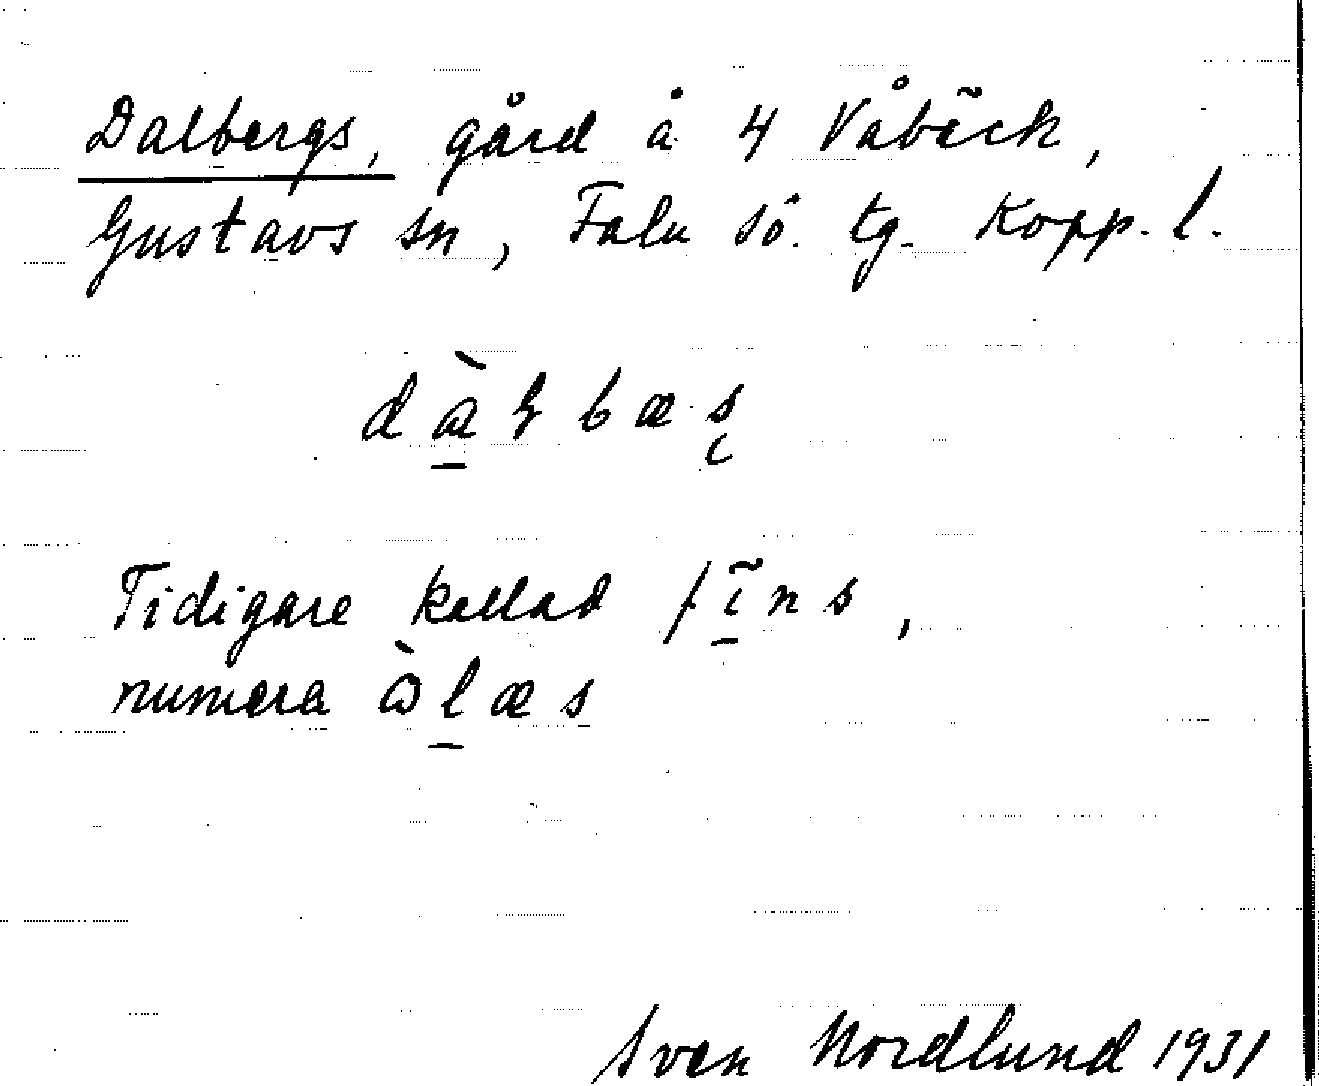 Dalbergs, gård å 4 Våbäck,
Gustavs sn, Falu sö. tg. Kopp. l.
Tidigare kallad fīns,
numera ò̀læs
Sven Nordlund 1931